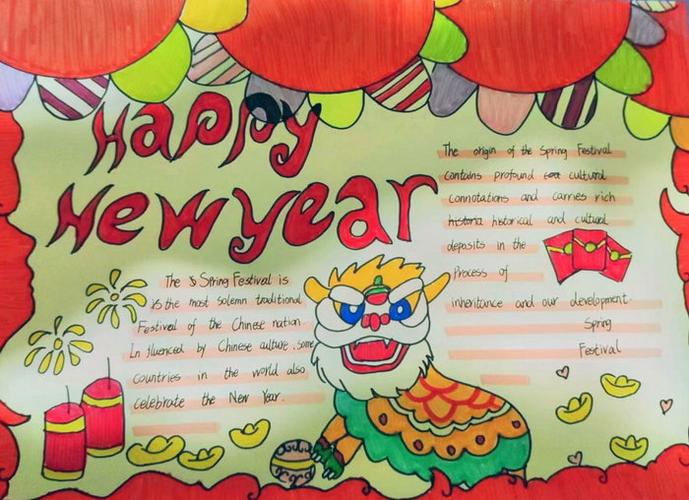 Happy
New year
The Spring Festival is
is the most solemn traditional
Festival of the Chinese nation
Influenced by Chinese culture, some
countries in the world also
celebrate the New Year.
The origin of the Spring Festival
contains profound cultural
connotations and carries rich
historical and cultural
deposits in the
Process of
inheritance and our development.
Spring
Festival